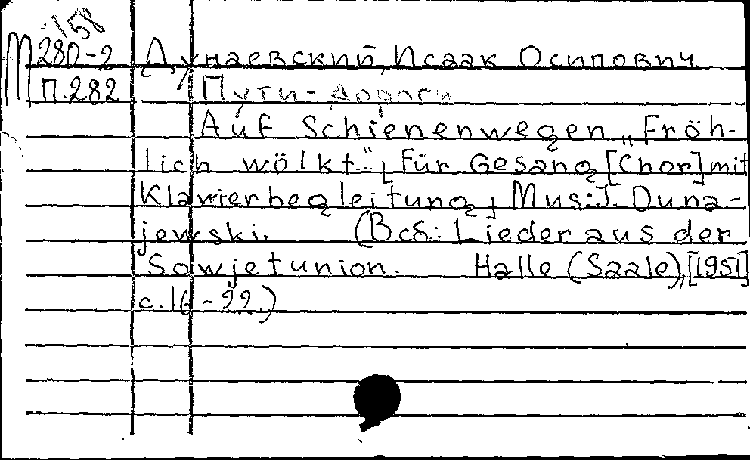 158
М280-2 Дунаевский, Исаак Осипович
П.282 Пути-дороги
Auf Schienenwegen „Fröh-
lich wölkt". Für Gesang [Chor] mit
Klavierbegleitung, Mus.: J. Duna-
jewski. (Всб.: Lieder aus der
Sowjetunion. Halle (Saale), [1951]
с.16-22.)